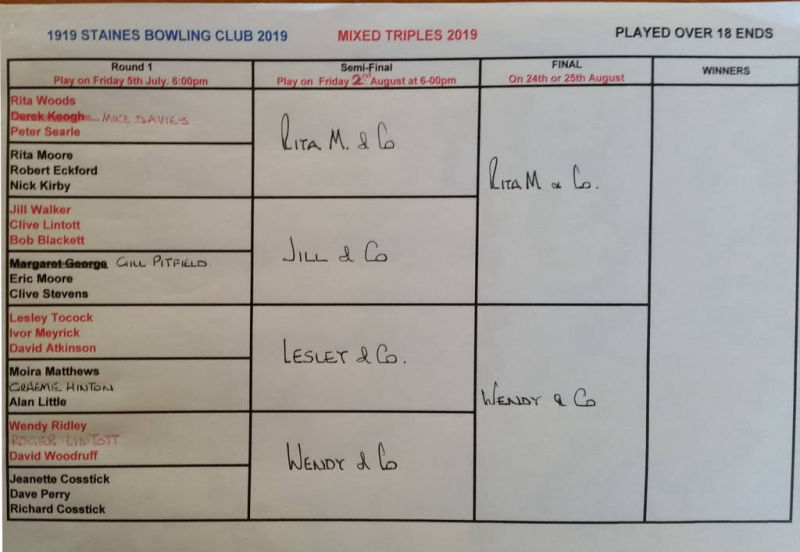 1919 STAINES BOWLING CLUB 2019 MIXED TRIPLES 2019 PLAYED OVER 18 ENDS
Round 1
Play on Friday 5th July. 6:00pm
Semi-Final
Play on Friday 2nd August at 6-00pm
FINAL
On 24th or 25th August
WINNERS
Rita Woods
Derek Keogh MIKE DAVIES
Peter Searle
Rita Moore
Robert Eckford
Nick Kirby
Jill Walker
Clive Lintott
Bob Blackett
Margaret George GILL PITFIELD
Eric Moore
Clive Stevens
Lesley Tocock
Ivor Meyrick
David Atkinson
Moira Matthews
GRAEME HINTON
Alan Little
Wendy Ridley
ROGER LINTOTT
David Woodruff
Jeanette Cosstick
Dave Perry
Richard Cosstick
RITA M. & Co
JILL & Co
LESLEY & Co.
WENDY & Co
RITA M & Co.
WENDY & Co